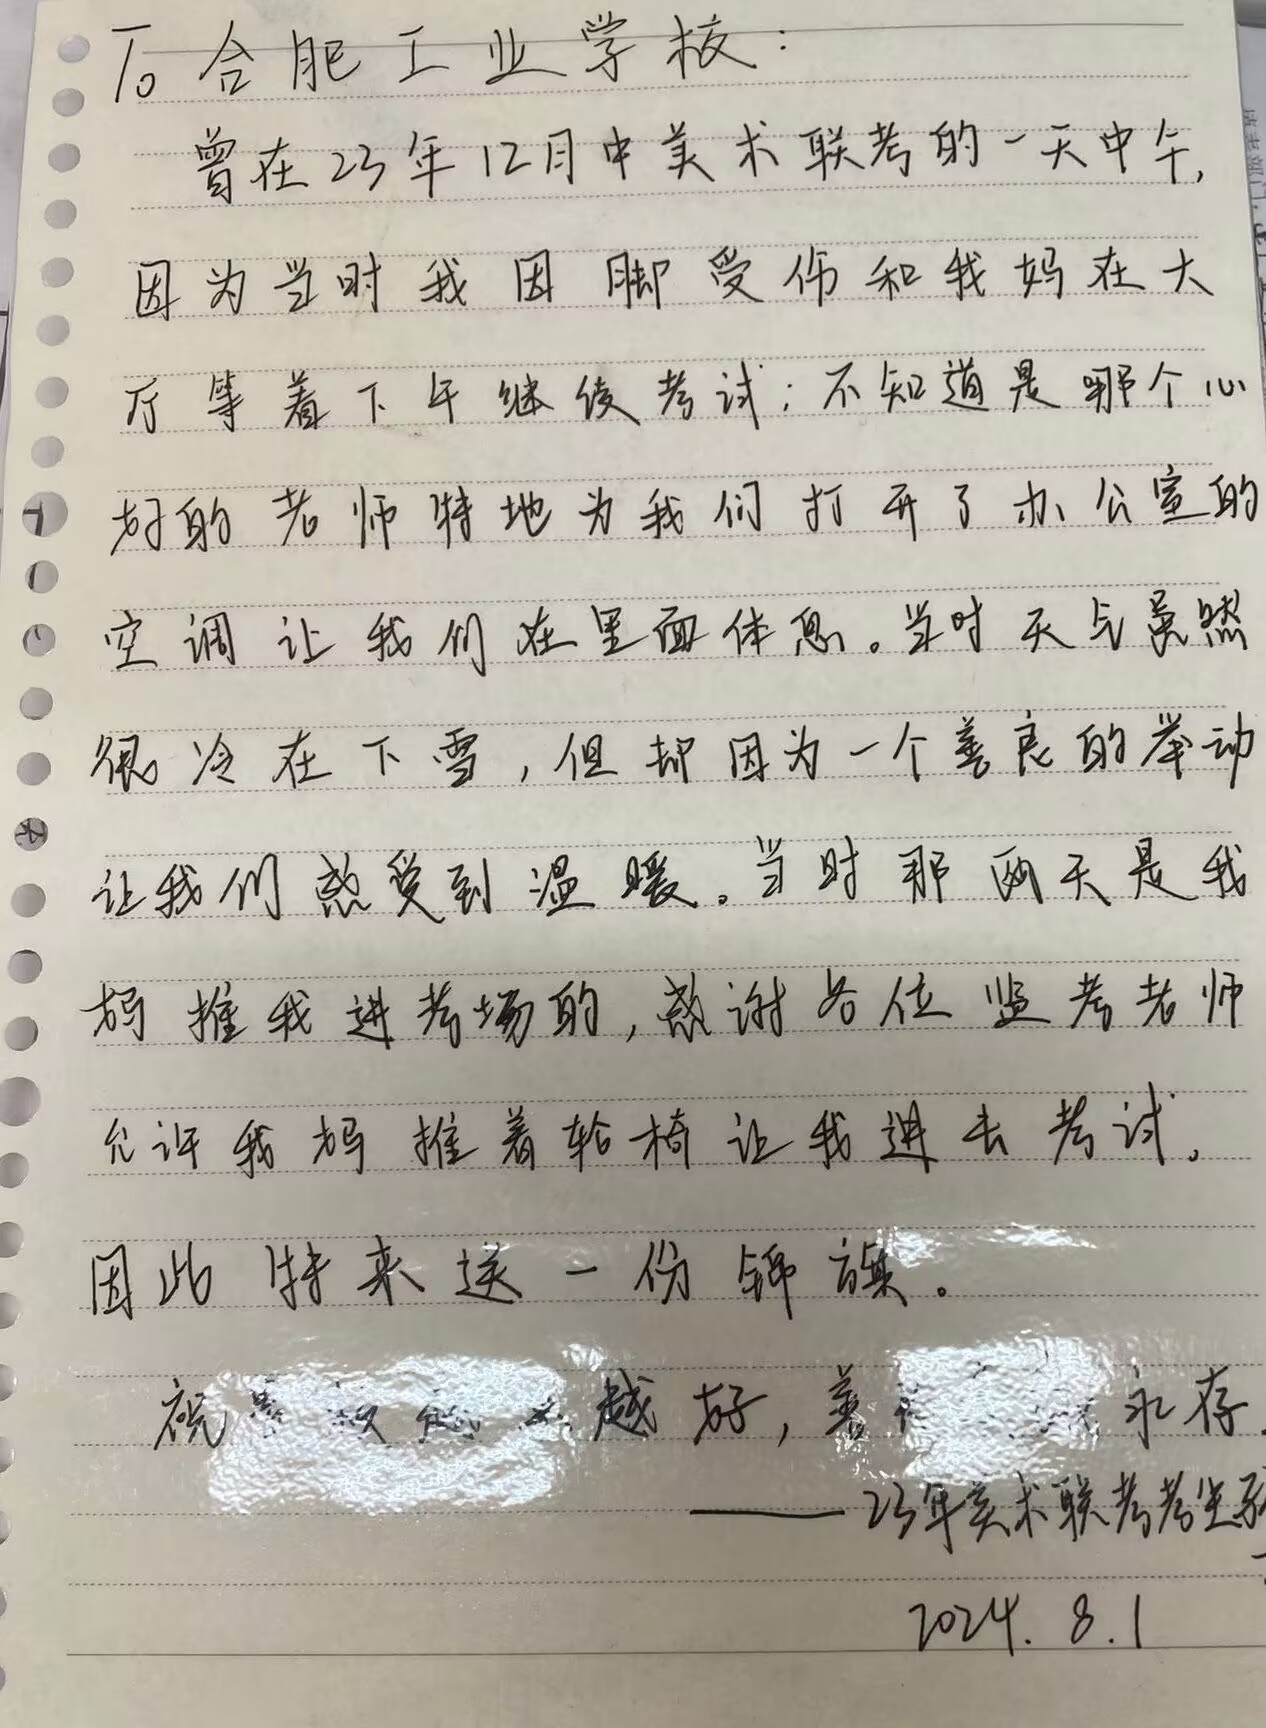 To 合肥工业学校：
曾在23年12月中美术联考的一天中午，
因为当时我因脚受伤和我妈在大
厅等着下午继续考试；不知道是哪个心
好的老师特地为我们打开了办公室的
空调让我们在里面休息。当时天气虽然
很冷在下雪，但却因为一个善良的举动
让我们感受到温暖。当时那两天是我
妈推我进考场的，感谢各位监考老师
允许我妈推着轮椅让我进去考试。
因此特来送一份锦旗。
祝 越 越好，善 永存
——23年美术联考考生
2024.8.1